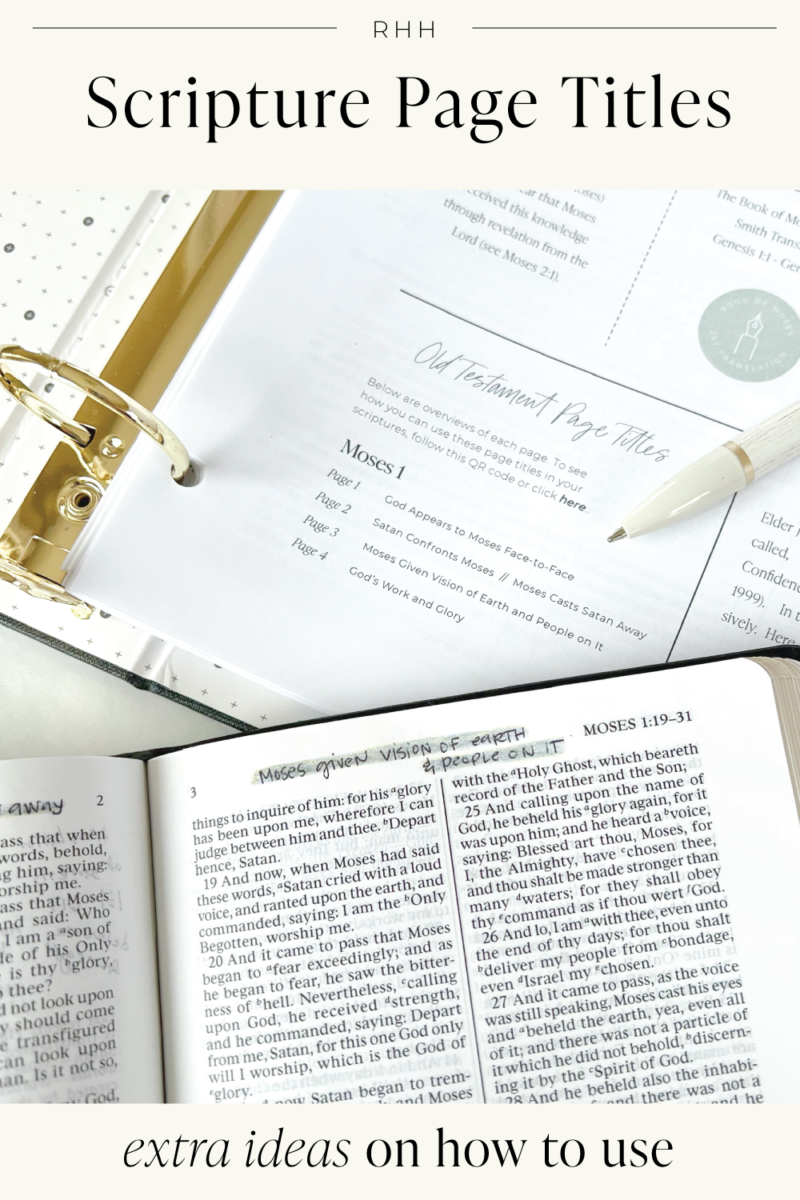 RHH
Scripture Page Titles
received this knowledge
through revelation from the
Lord (see Moses 2:1).
The Book of
Smith
Genesis 1:1 -
BOOK OF MOSES
TRANSLATION
Old Testament Page Titles
Below are overviews of each page. To see
how you can use these page titles in your
scriptures, follow this QR code or click here.
Moses 1
Page 1 God Appears to Moses Face-to-Face
Page 2 Satan Confronts Moses // Moses Casts Satan Away
Page 3 Moses Given Vision of Earth and People on It
Page 4 God's Work and Glory
Elder
called,
1999). In
sively. Here
away 2
ass that when
words, behold,
g him, saying:
orship me.
ass that Moses
and said: Who
I am a ᵃson of
of his Only
is thy ᵇglory,
thee?
not look upon
should come
transfigured
can look upon
an. Is it not so,
God,
3 Moses given vision of earth MOSES 1:19–31
& people on it
things to inquire of him: for his ᵃglory
has been upon me, wherefore I can
judge between him and thee. ᵇDepart
hence, Satan.
19 And now, when Moses had said
these words, ᵃSatan cried with a loud
voice, and ranted upon the earth, and
commanded, saying: I am the ᵇOnly
Begotten, worship me.
20 And it came to pass that Moses
began to ᵃfear exceedingly; and as
he began to fear, he saw the bitter-
ness of ᵇhell. Nevertheless, ᶜcalling
upon God, he received ᵈstrength,
and he commanded, saying: Depart
from me, Satan, for this one God only
will I worship, which is the God of
ᵉglory.
now Satan began to trem-
and Moses
with the ᵃHoly Ghost, which beareth
record of the Father and the Son;
25 And calling upon the name of
God, he beheld his ᵃglory again, for it
was upon him; and he heard a ᵇvoice,
saying: Blessed art thou, Moses, for
I, the Almighty, have ᶜchosen thee,
and thou shalt be made stronger than
many ᵈwaters; for they shall obey
thy ᵉcommand as if thou wert ᶠGod.
26 And lo, I am ᵃwith thee, even unto
the end of thy days; for thou shalt
ᵇdeliver my people from ᶜbondage,
even ᵈIsrael my ᵉchosen.
27 And it came to pass, as the voice
was still speaking, Moses cast his eyes
and ᵃbeheld the earth, yea, even all
of it; and there was not a particle of
it which he did not behold, ᵇdiscern-
ing it by the ᶜSpirit of God.
28 And he beheld also the inhabi-
and there was not a
and he
extra ideas on how to use